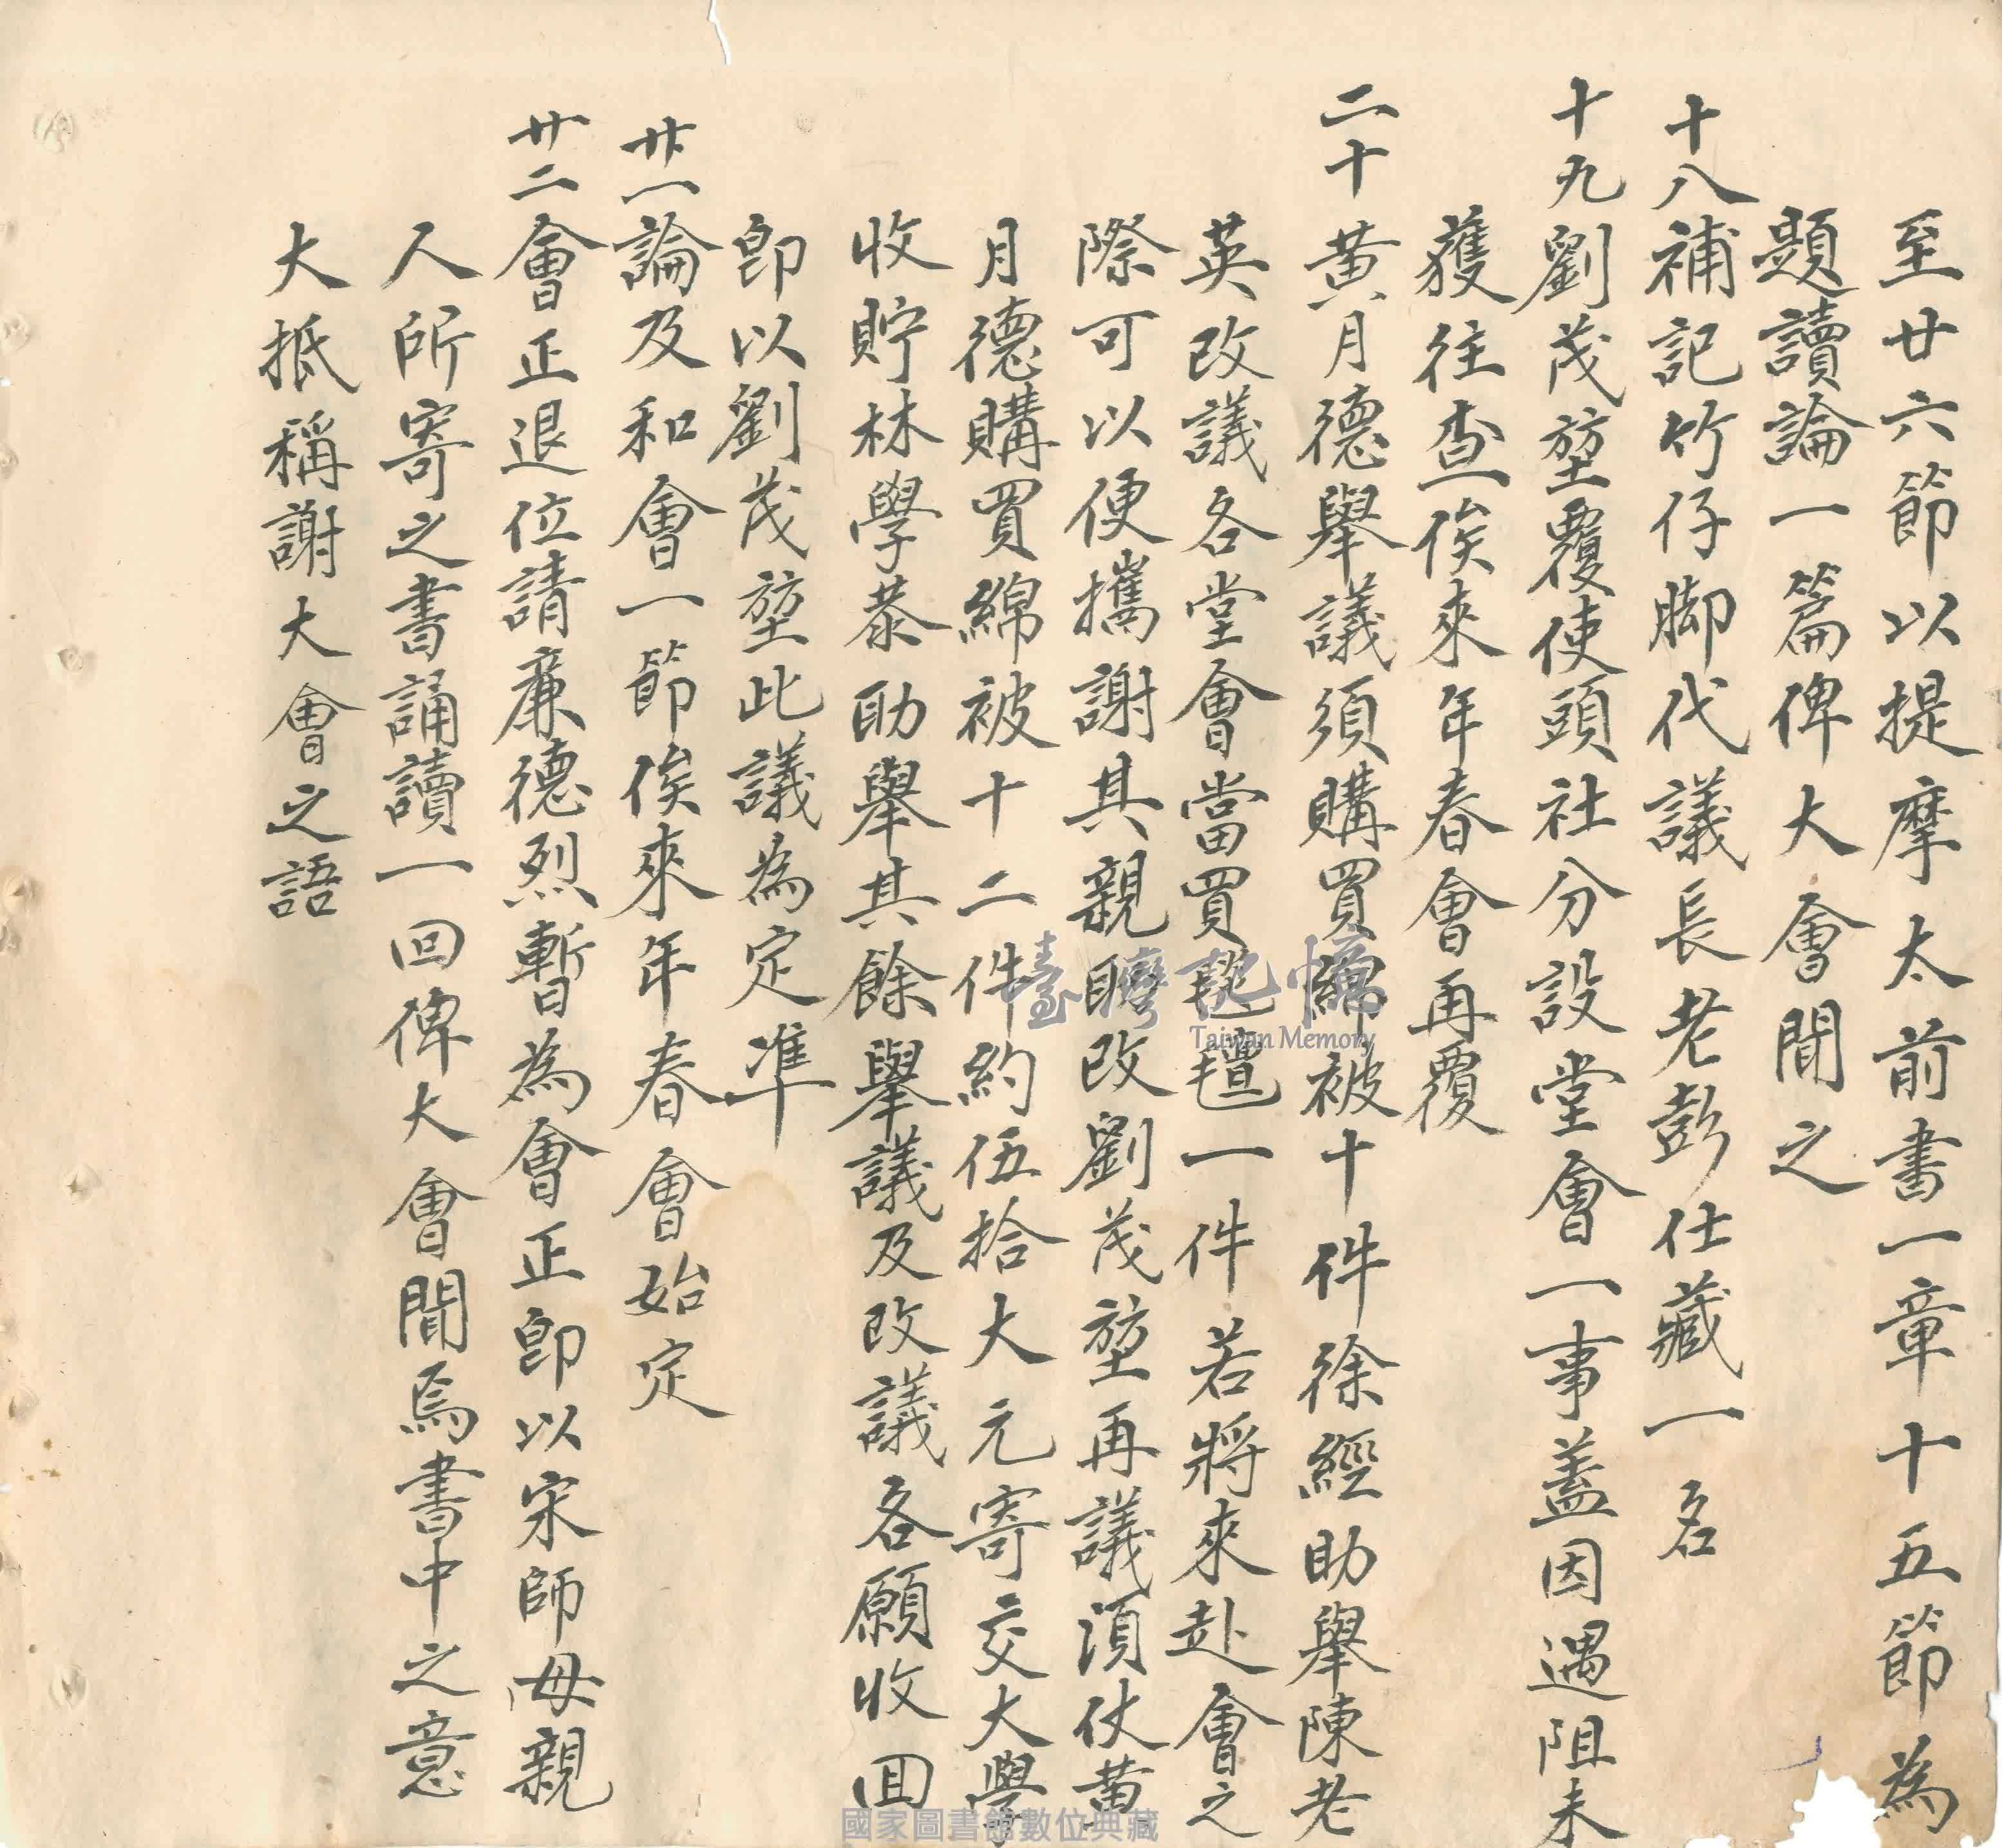 至廿六節以提摩太前書一章十五節為
題讀論一篇俾大會聞之
十八補記竹仔脚代議長老彭仕藏一名
十九劉茂堃覆使頭社分設堂會一事蓋因遇阻未
獲往查俟來年春會再覆
二十黃月德舉議須購買綿被十件徐經助舉陳老
英改議各堂會當買氈氊一件若將來赴會之
際可以便攜謝其親助改劉茂堃再議須仗黃
月德購買綿被十二件約伍拾大元寄交大學
收貯林學恭助舉其餘舉議及改議各願收回
即以劉茂堃此議為定準
廿一論及和會一節俟來年春會始定
廿二會正退位請廉德烈暫為會正即以宋師母親
人所寄之書誦讀一回俾大會聞焉書中之意
大抵稱謝大會之語
臺灣記憶
Taiwan Memory
國家圖書館數位典藏